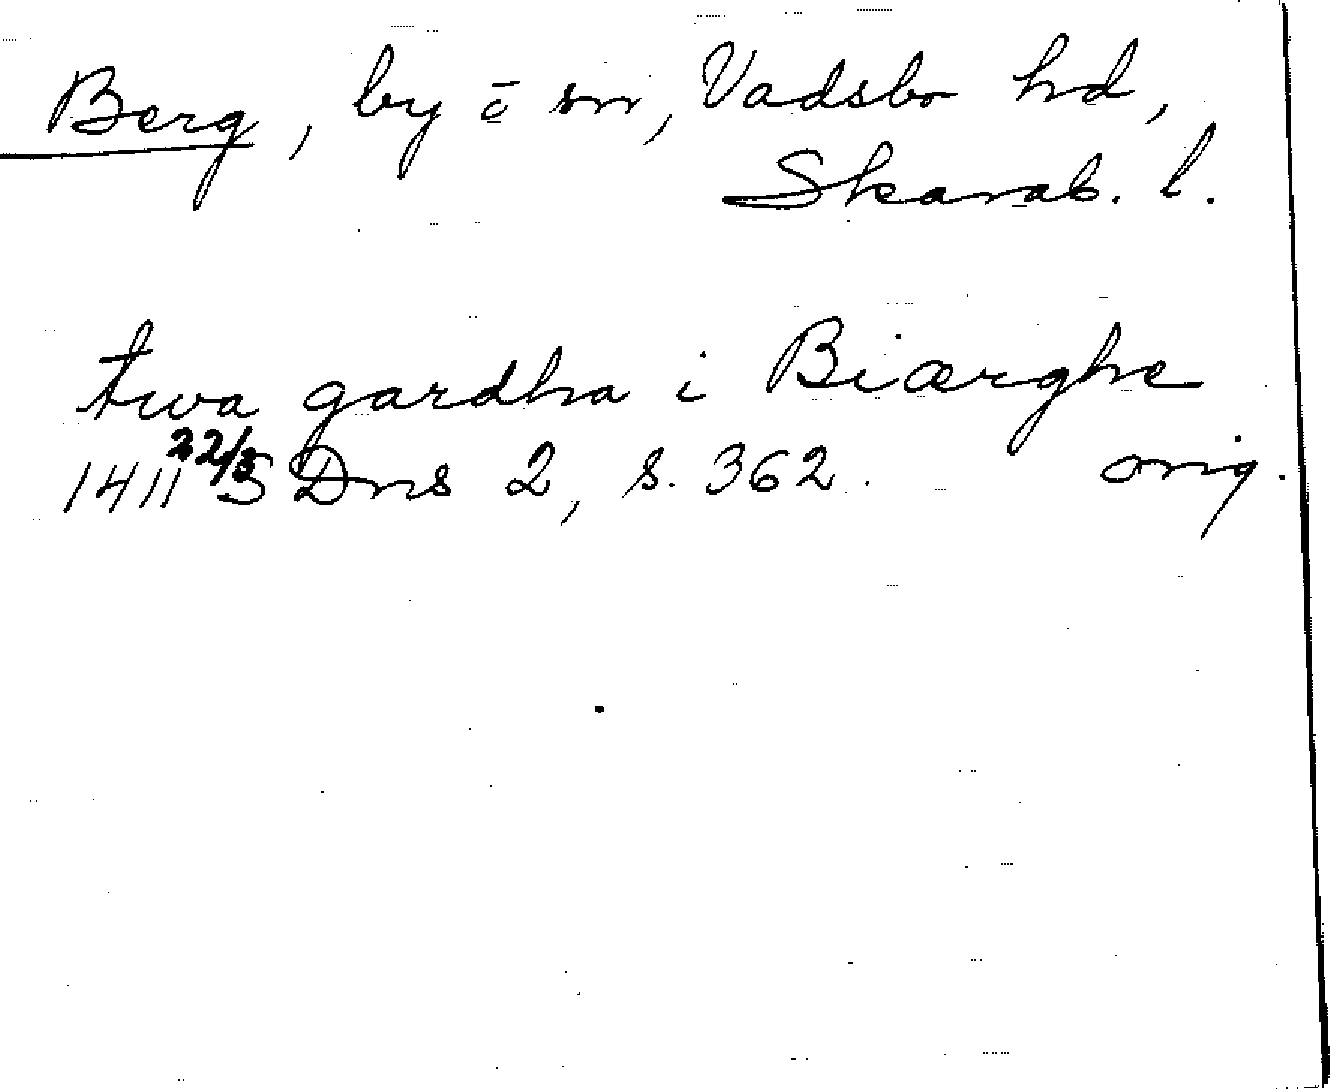 Berg, by o sn, Vadsbo hd,
Skarab. l.
twa gardha i Biærghe
1411 22/3 SDns 2, s. 362. orig.